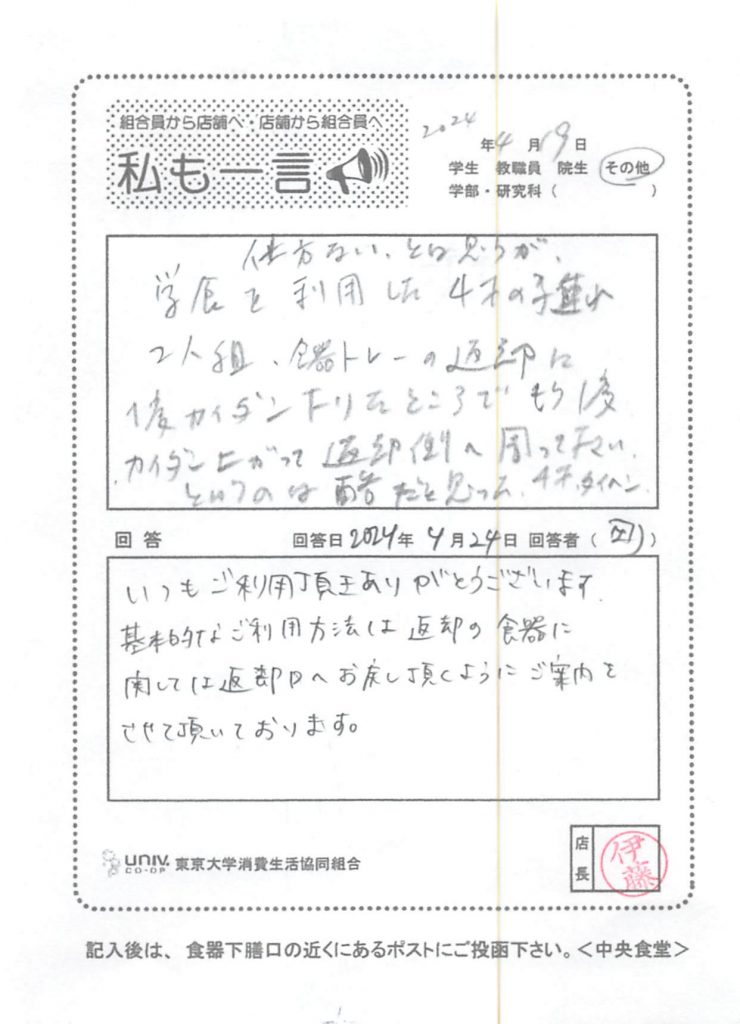 組合員から店舗へ・店舗から組合員へ
私も一言
2024年4月19日
学生 教職員 院生 その他
学部・研究科（ ）
仕方ない、とは思うが、
学食を利用した4才の子連れ
2人組、食器トレーの返却に
1度カイダン下りたところでもう1度
カイダン上がって返却側へ周って下さい、
というのは酷だと思った。4才、タイヘン.
回答 回答日2024年4月24日 回答者（ ）
いつもご利用頂きありがとうございます.
基本的なご利用方法は返却の食器に
関しては返却口へお戻し頂くようにご案内を
させて頂いております。
UNIV. CO-OP 東京大学消費生活協同組合
店長 伊藤
記入後は、食器下膳口の近くにあるポストにご投函下さい。＜中央食堂＞